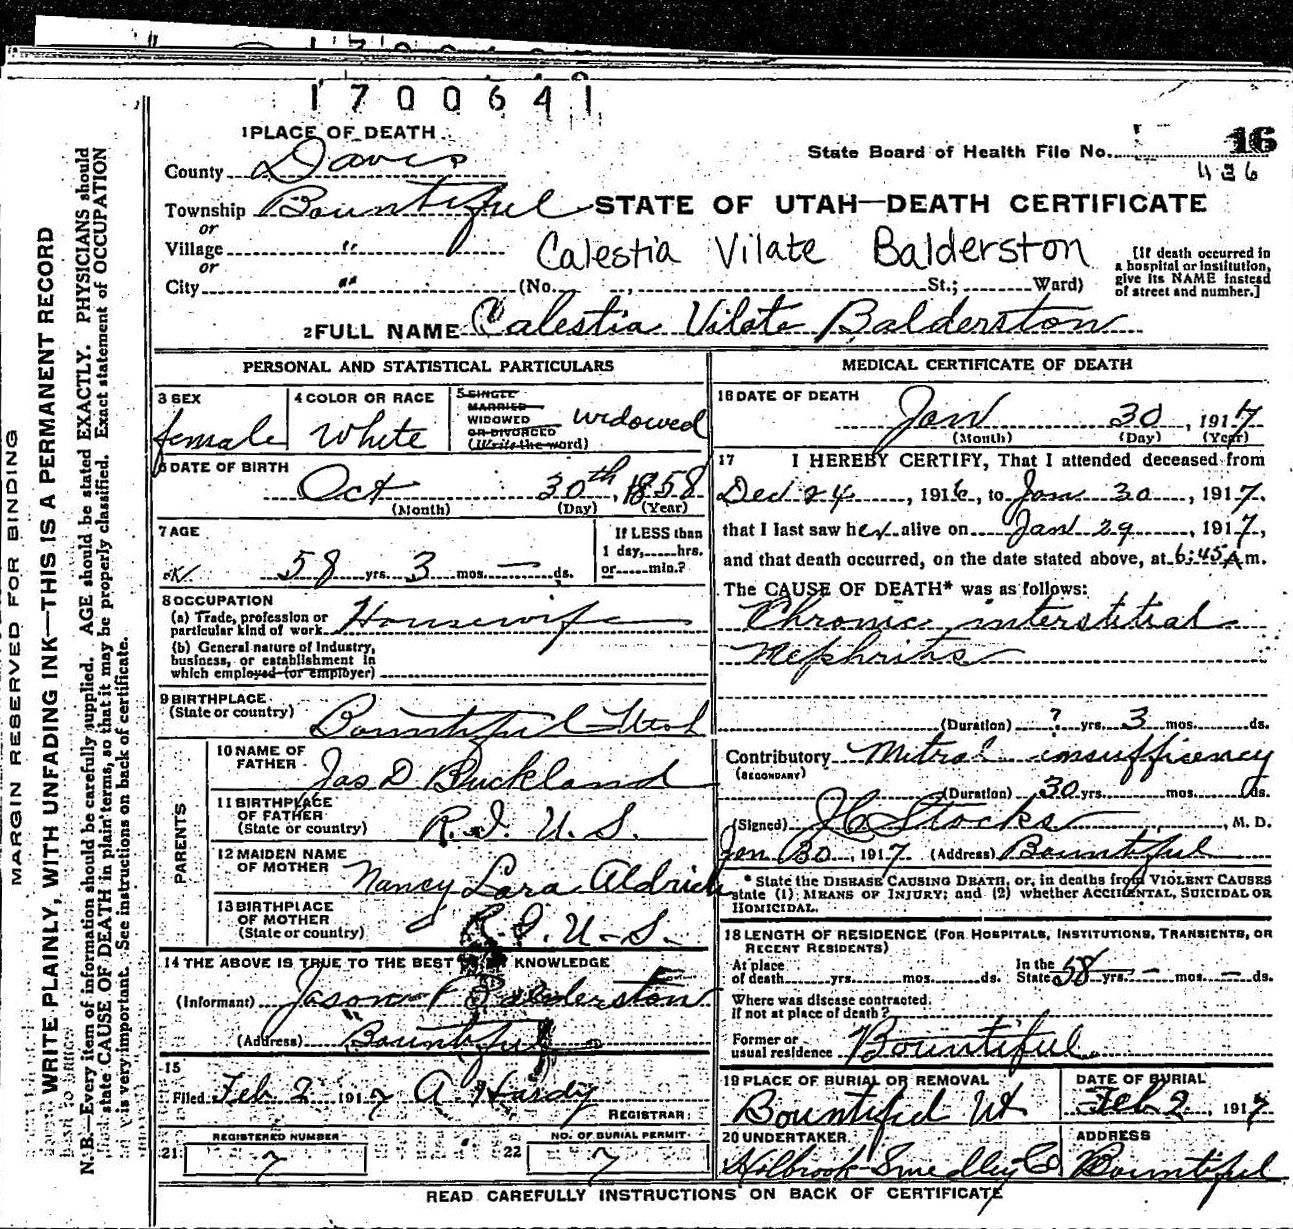 1700641
1 PLACE OF DEATH
County Davis
State Board of Health File No. 16
436
Township Bountiful
STATE OF UTAH—DEATH CERTIFICATE
or
Village "
Calestia Vilate Balderston
or
City "
(No. , St.; Ward)
[If death occurred in
a hospital or institution,
give its NAME instead
of street and number.]
2 FULL NAME Calestia Vilate Balderston
PERSONAL AND STATISTICAL PARTICULARS
3 SEX
female
4 COLOR OR RACE
White
5 SINGLE
MARRIED
WIDOWED
OR DIVORCED
(Write the word)
widowed
6 DATE OF BIRTH
Oct 30th, 1858
(Month) (Day) (Year)
7 AGE
58 yrs. 3 mos. — ds.
If LESS than
1 day, hrs.
or min.?
8 OCCUPATION
(a) Trade, profession or
particular kind of work Housewife
(b) General nature of Industry,
business, or establishment in
which employed (or employer)
9 BIRTHPLACE
(State or country) Bountiful Utah
PARENTS
10 NAME OF
FATHER Jas D. Buckland
11 BIRTHPLACE
OF FATHER
(State or country) R. I. U. S.
12 MAIDEN NAME
OF MOTHER Nancy Lara Aldrich
13 BIRTHPLACE
OF MOTHER
(State or country) R. I. U-S.
14 THE ABOVE IS TRUE TO THE BEST KNOWLEDGE
(Informant) Jason F Balderston
(Address) Bountiful
15
Filed Feb 2 1917 A. Hardy
REGISTRAR
REGISTERED NUMBER
21 7
NO. OF BURIAL PERMIT
22 7
MEDICAL CERTIFICATE OF DEATH
16 DATE OF DEATH
Jan 30, 1917
(Month) (Day) (Year)
17 I HEREBY CERTIFY, That I attended deceased from
Dec 24, 1916, to Jan 30, 1917,
that I last saw her alive on Jan 29, 1917,
and that death occurred, on the date stated above, at 6:45 A.m.
The CAUSE OF DEATH* was as follows:
Chronic interstitial
Nephritis
(Duration) ? yrs. 3 mos. ds.
Contributory Mitral insufficiency
(SECONDARY)
(Duration) 30 yrs. mos. ds.
(Signed) J C Stocks, M. D.
Jan 30, 1917 (Address) Bountiful
* State the DISEASE CAUSING DEATH, or, in deaths from VIOLENT CAUSES
state (1) MEANS OF INJURY; and (2) whether ACCIDENTAL, SUICIDAL OR
HOMICIDAL.
18 LENGTH OF RESIDENCE (FOR HOSPITALS, INSTITUTIONS, TRANSIENTS, OR
RECENT RESIDENTS)
At place
of death yrs. mos. ds.
In the
State 58 yrs. — mos. — ds.
Where was disease contracted,
if not at place of death?
Former or
usual residence Bountiful
19 PLACE OF BURIAL OR REMOVAL
Bountiful Ut
DATE OF BURIAL
Feb 2, 1917
20 UNDERTAKER
Holbrook-Smedley Co
ADDRESS
Bountiful
READ CAREFULLY INSTRUCTIONS ON BACK OF CERTIFICATE
MARGIN RESERVED FOR BINDING
WRITE PLAINLY, WITH UNFADING INK—THIS IS A PERMANENT RECORD
N. B.—Every item of information should be carefully supplied. AGE should be stated EXACTLY. PHYSICIANS should
state CAUSE OF DEATH in plain terms, so that it may be properly classified. Exact statement of OCCUPATION
is very important. See instructions on back of certificate.